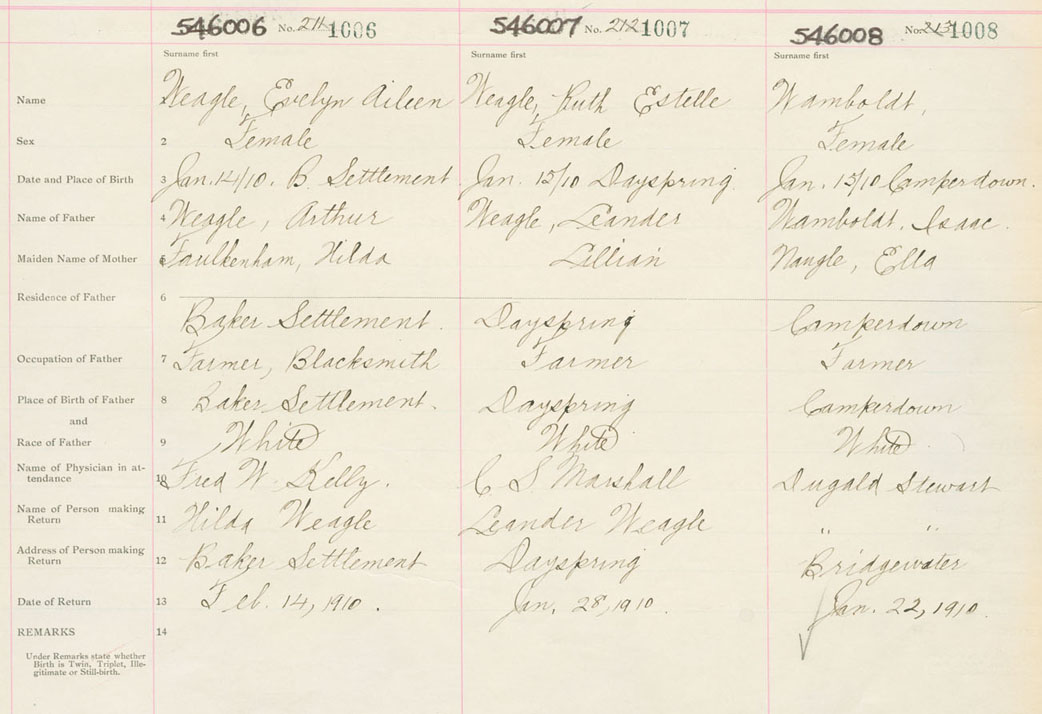 546006 No. 211 1006 546007 No. 212 1007 546008 No. 213 1008
Surname first Surname first Surname first
Name Weagle, Evelyn Aileen Weagle, Ruth Estelle Wamboldt,
Sex 2 Female Female Female
Date and Place of Birth 3 Jan. 14/10. B. Settlement Jan. 15/10 Dayspring. Jan. 15/10 Camperdown.
Name of Father 4 Weagle, Arthur Weagle, Leander Wamboldt, Isaac.
Maiden Name of Mother Faulkenham, Hilda Lillian Naugle, Ella
Residence of Father 6
Baker Settlement. Dayspring Camperdown
Occupation of Father 7 Farmer, Blacksmith Farmer Farmer
Place of Birth of Father 8 Baker Settlement. Dayspring Camperdown
and
Race of Father 9 White White White
Name of Physician in at-
tendance 10 Fred W. Kelly. C S. Marshall Dugald Stewart
Name of Person making
Return 11 Hilda Weagle Leander Weagle " "
Address of Person making
Return 12 Baker Settlement Dayspring Bridgewater
Date of Return 13 Feb. 14, 1910. Jan. 28, 1910. Jan. 22, 1910.
REMARKS 14
Under Remarks state whether
Birth is Twin, Triplet, Ille-
gitimate or Still-birth.